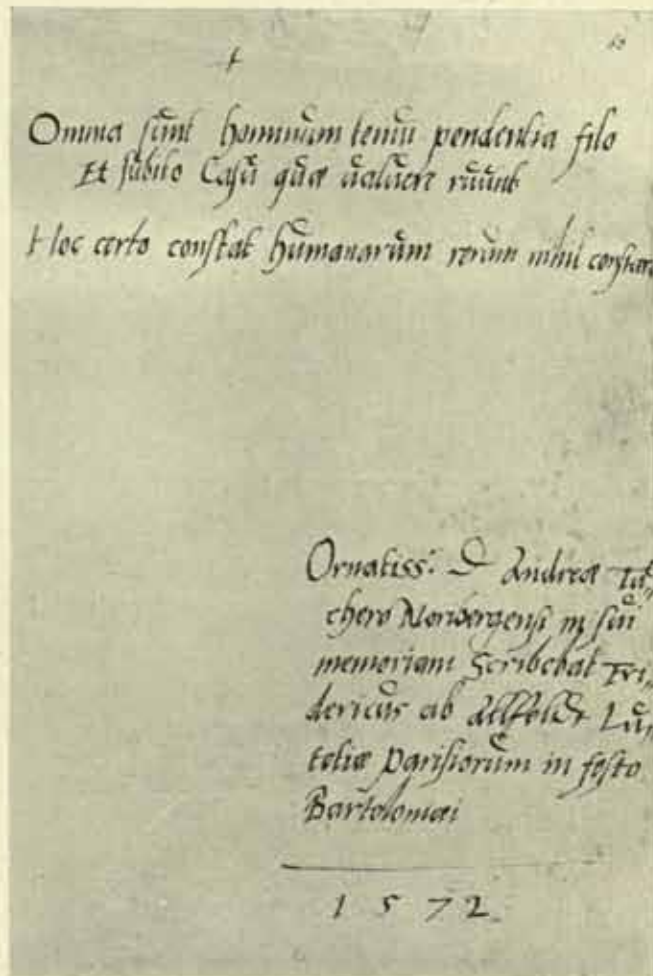 Omnia sunt hominum tenui pendentia filo
Et subito Casu quæ valuere ruunt
Hoc certo constat humanarum rerum nihil constare
Ornatiss: D Andreæ Tu„
chero Noribergensi in sui
memoriam Scribebat Fri„
dericus ab Allfeldt Lu„
tetiæ Parisiorum in festo
Bartolomæi
1572